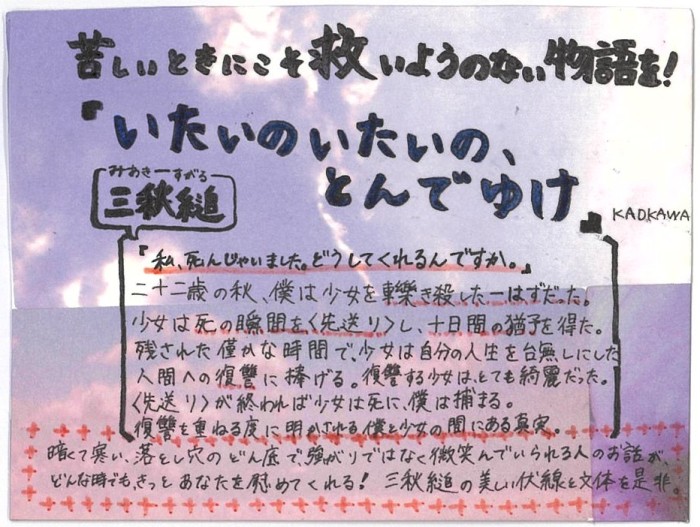 苦しいときにこそ救いようのない物語を!
『いたいのいたいの、
とんでゆけ』
KADKAWA
みあきーすがる
三秋縋
『私、死んじゃいました。どうしてくれるんですか。』
二十二歳の秋、僕は少女を轢き殺した―はずだった。
少女は死の瞬間を〈先送り〉し、十日間の猶予を得た。
残された僅かな時間で、少女は自分の人生を台無しにした
人間への復讐に捧げる。復讐する少女は、とても綺麗だった。
〈先送り〉が終われば少女は死に、僕は捕まる。
復讐を重ねる度に明かされる僕と少女の間にある真実。
暗くて寒い、落とし穴のどん底で、強がりではなく微笑んでいられる人のお話が、
どんな時でも、きっとあなたを慰めてくれる! 三秋縋の美しい伏線と文体を是非。